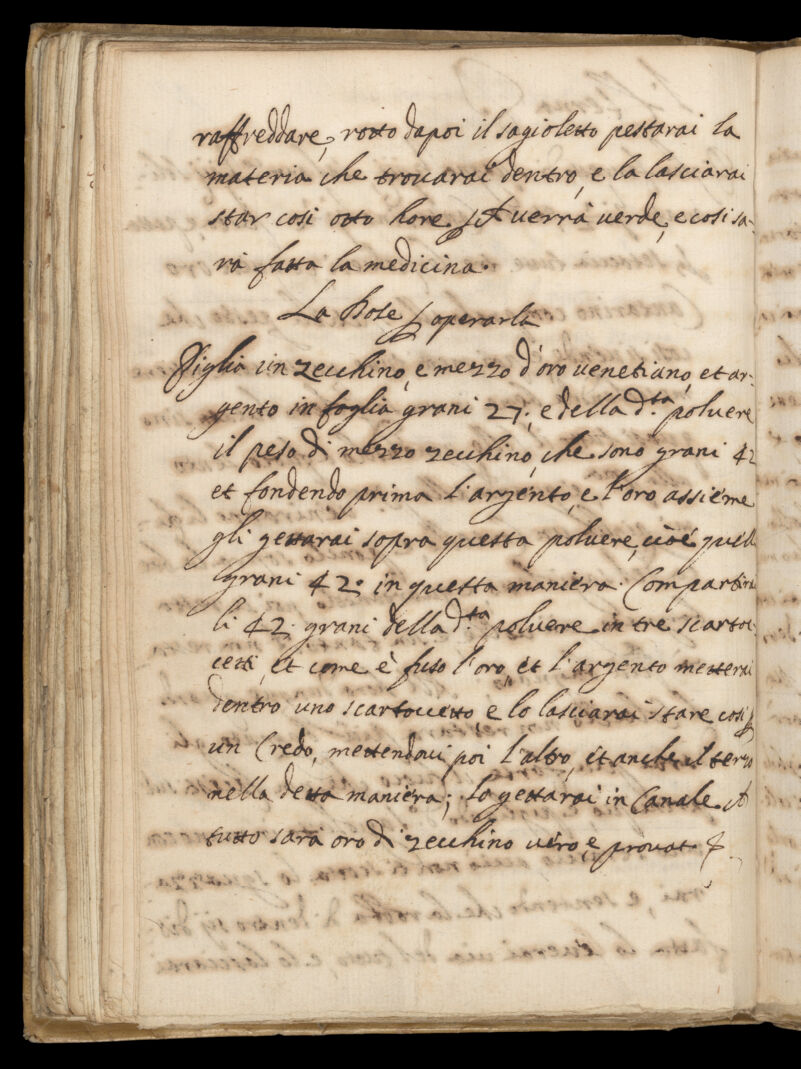 raffreddare, rotto dapoi il sagioletto pestarai la
materia che trouarai dentro, e la lasciarai
star cosi otto hore, et uerrà uerde, e cosi sa-
rà fatta la medicina.
La Dose p operarla
Piglia un zecchino, e mezzo d'oro uenetiano, et ar-
gento in foglia grani 27; e della d.ta poluere
il peso di mezzo zecchino, che sono grani 42
et fondendo prima l'argento, e l'oro assieme
gli gettarai sopra questa poluere, cioè quelli
grani 42. in questa maniera. Compartirai
li 42. grani della d.ta poluere in tre scartoc-
cetti, et come è fuso l'oro, et l'argento metterai
dentro uno scartoccetto e lo lasciarai stare cosi p
un Credo, mettendoui poi l'altro, et anche il terzo
nella detta maniera; lo gettarai in Canale, et
tutto sarà oro di zecchino uero, e prouat.